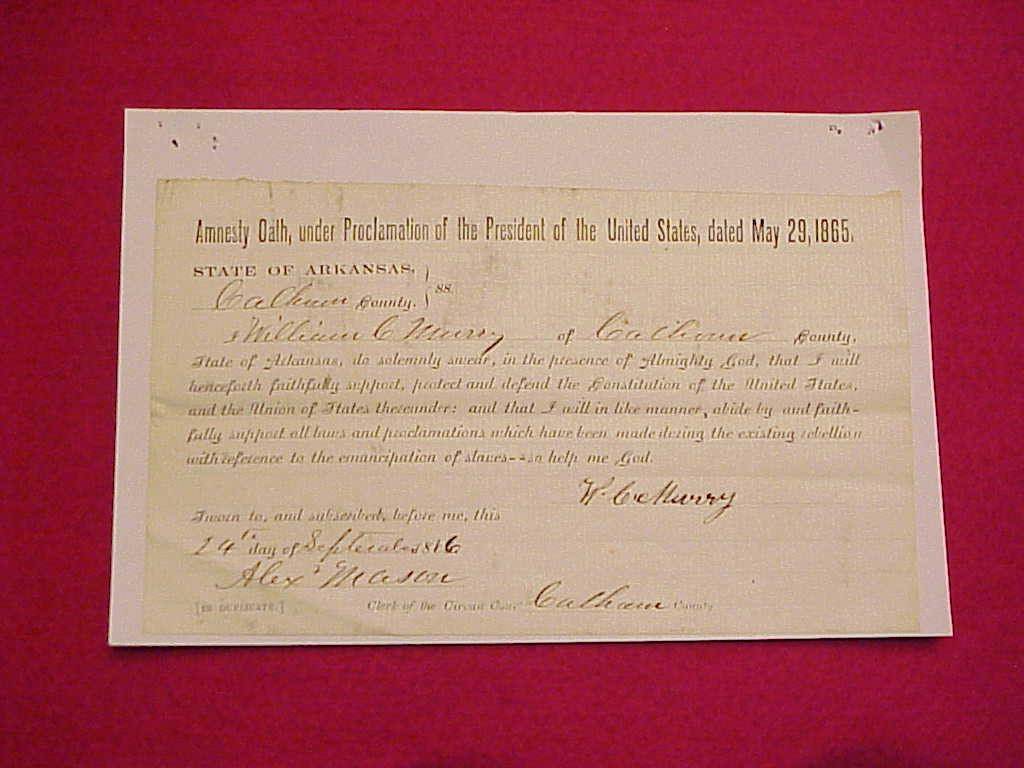 Amnesty Oath, under Proclamation of the President of the United States, dated May 29, 1865.
STATE OF ARKANSAS,
Calhoun County. } ss.
I William C Murry of Calhoun County,
State of Arkansas, do solemnly swear, in the presence of Almighty God, that I will
henceforth faithfully support, protect and defend the Constitution of the United States,
and the Union of States thereunder: and that I will in like manner, abide by and faith-
fully support all laws and proclamations which have been made during the existing rebellion
with reference to the emancipation of slaves--so help me God.
W. C. Murry
Sworn to, and subscribed, before me, this
24th day of September 186
Alexr Mason
[IN DUPLICATE.] Clerk of the Circuit Court Calhoun County